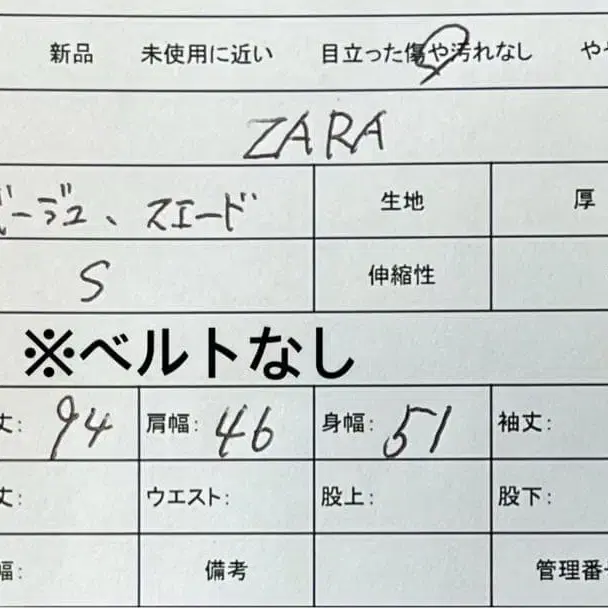 新品 未使用に近い 目立った傷や汚れなし やや
ZARA
ベージュ、スエード 生地 厚
S 伸縮性
※ベルトなし
丈: 94 肩幅: 46 身幅: 51 袖丈:
丈: ウエスト: 股上: 股下:
幅: 備考 管理番号